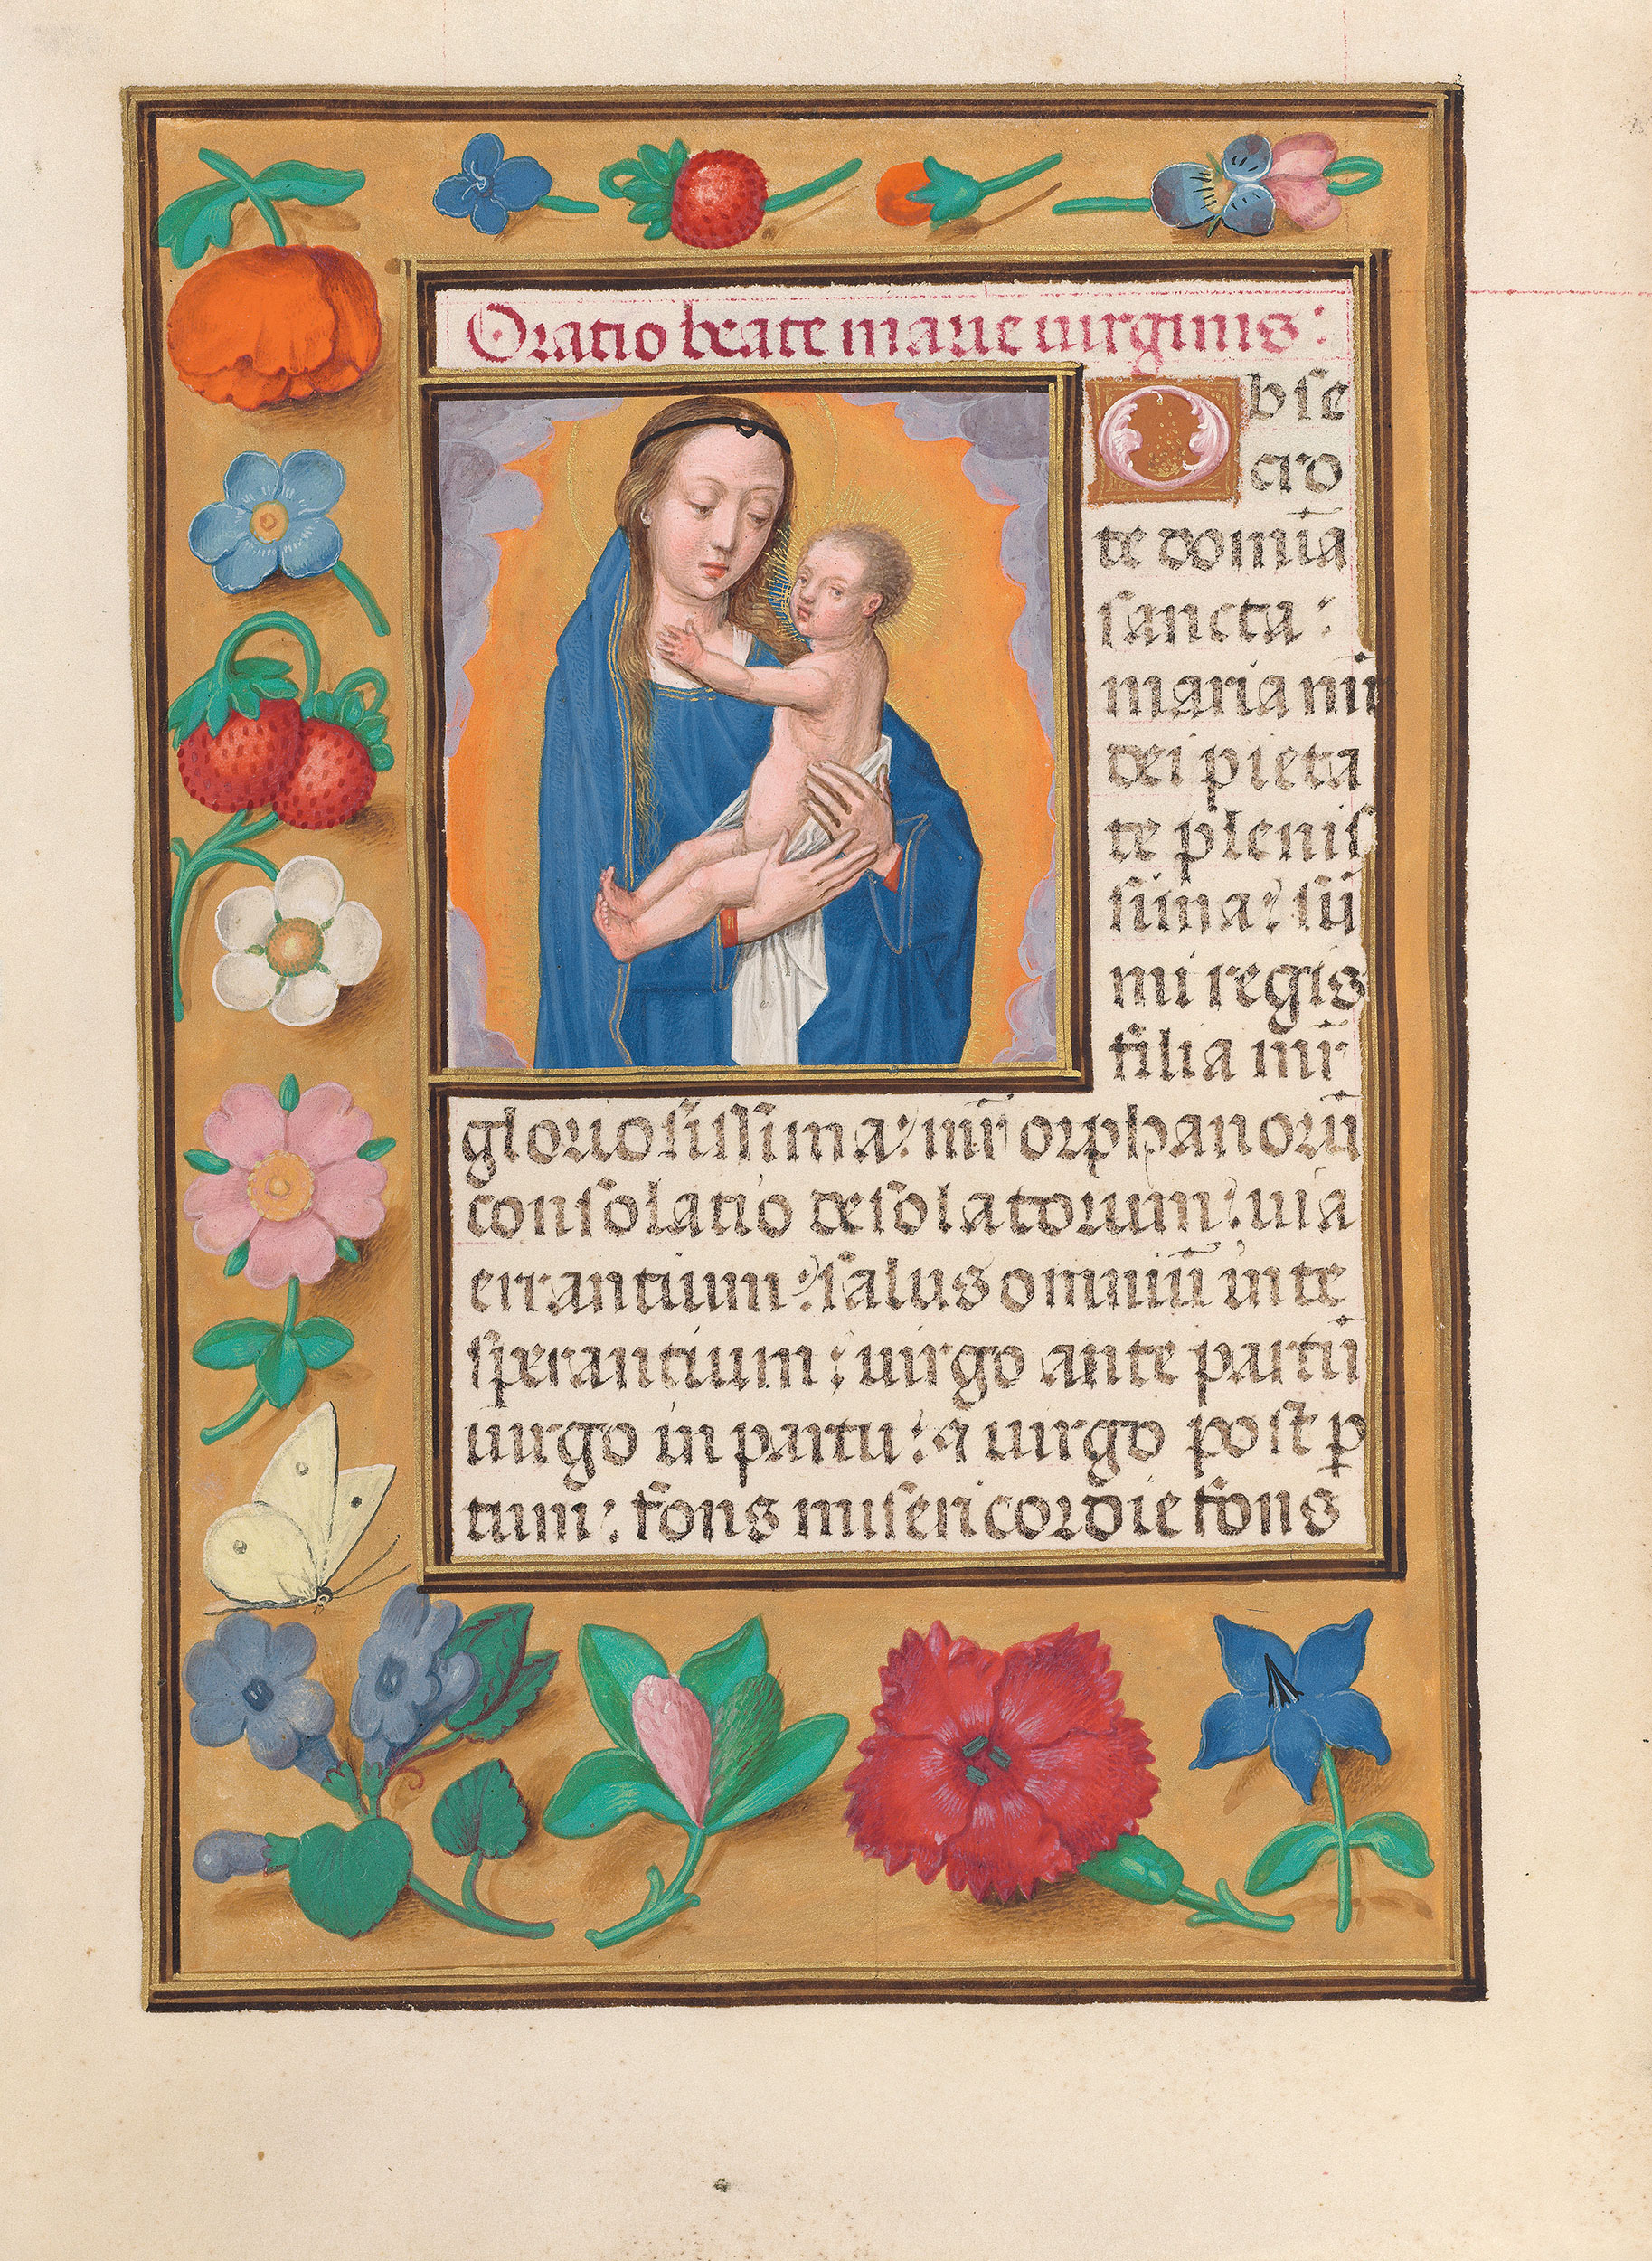 Oratio beate marie uirginis:
Obse
cro
te domīa
sancta:
maria mr̄
dei pieta
te plenis
sima: sū
mi regis
filia mr̄
gloriosissima: mr̄ orphanorū
consolatio desolatorum: uia
errantium: salus omniū in te
sperantium: uirgo ante partū
uirgo in partu: ⁊ uirgo post p̄
tum: fons misericordie fons